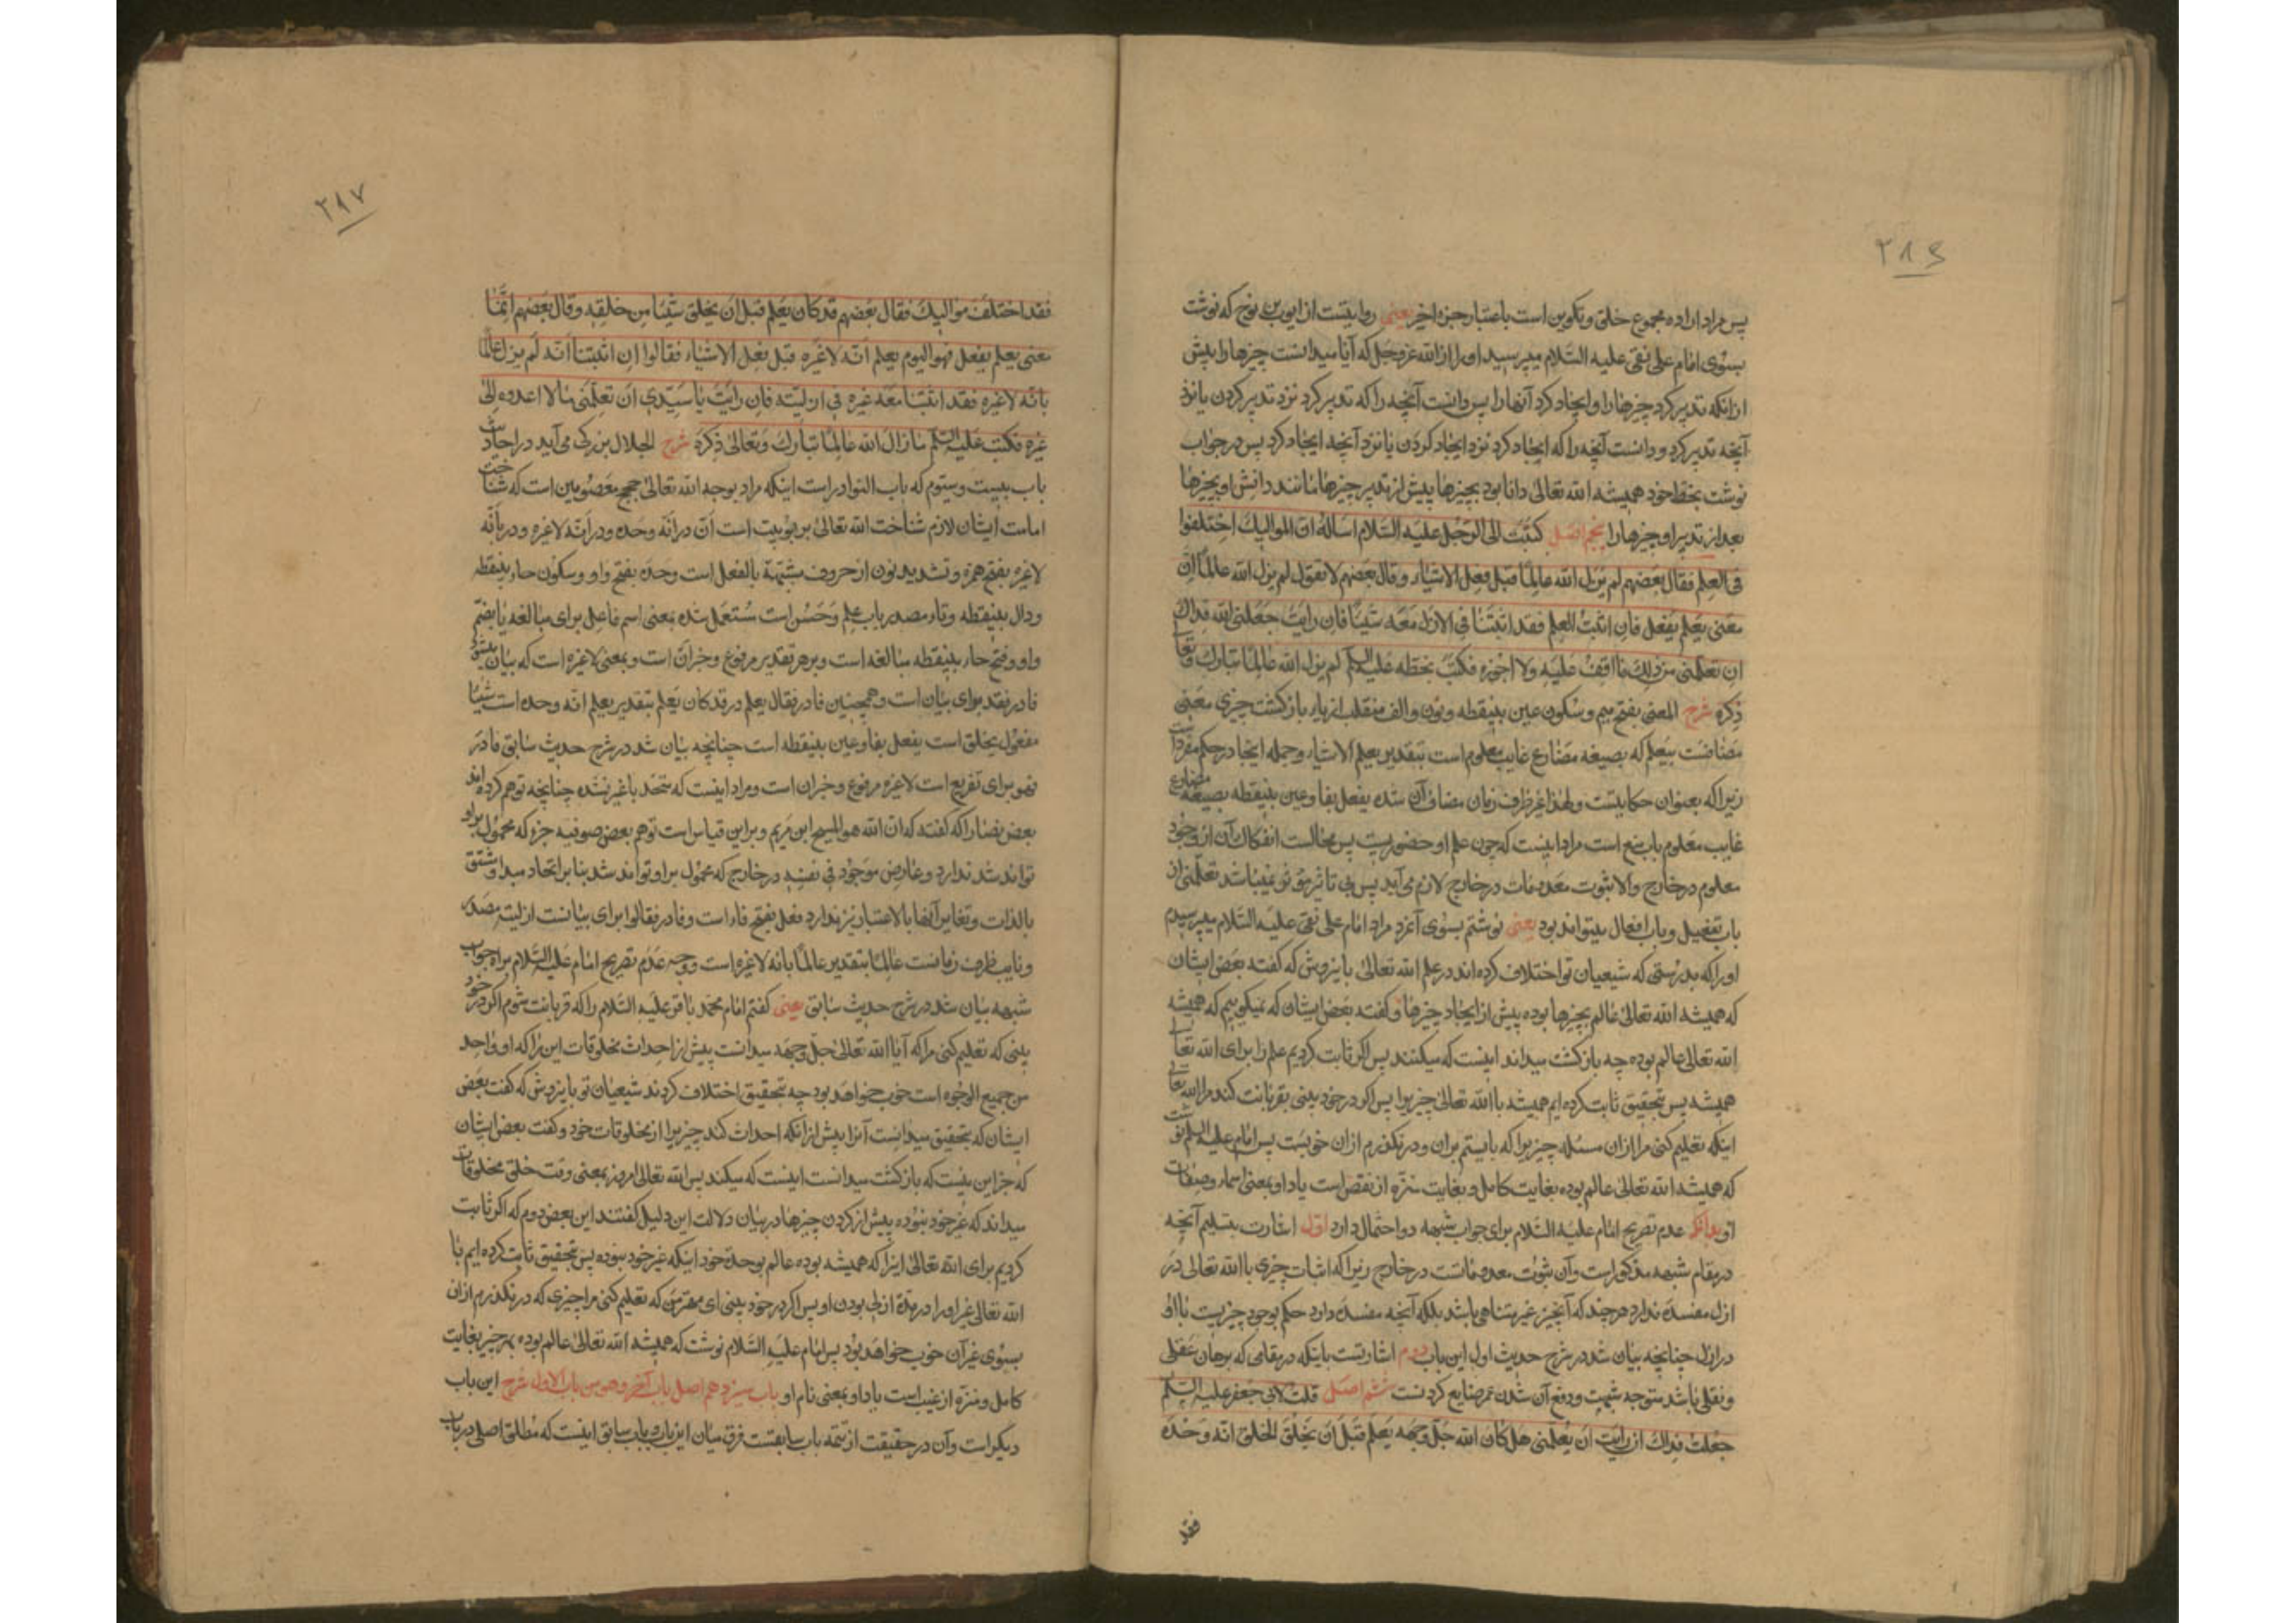 ۲۸۶
پس مراد اراده مجموع خلق و تکوین است باعتبار جزء اخیر یعنی روایتست از ایوب بن نوح که نوشت
بسوی امام علی نقی علیه السّلام میپرسید او را از الله عزوجل که آیا میدانست چیزها را پیش
ازانکه تدبیر کرد چیزها را و ایجاد کرد آنها را پس دانست آنچه را که تدبیر کرد نزد تدبیر کردن یا نزد
آنچه تدبیر کرد و دانست آنچه را که ایجاد کرد نزد ایجاد کردن یا نزد آنچه ایجاد کرد پس در جواب
نوشت بخط خود همیشه الله تعالی دانا بود بچیزها پیش از تدبیر چیزها مانند دانش او بچیزها
بعد از تدبیر او چیزها را پنجم اصل کتبت الی الرّجل علیه السّلام اسأله انّ الموالیک اختلفوا
فی العلم فقال بعضهم لم یزل الله عالماً قبل فعل الاشیاء و قال بعضهم لا نقول لم یزل الله عالماً لانّ
معنی یعلم یفعل فان اثبت العلم فقد اثبتنا فی الازل معه شیئاً فان رأیت جعلنی الله فداک
ان تعلّمنی من ذلک ما اقف علیه ولا اجوزه فکتب بخطّه علیه السلم لم یزل الله عالماً تبارک و تعالی
ذکره شرح المعنی بفتح میم و سکون عین بینقطه و نون و الف منقلب از یاء بازکشت چیزی معنی
مضافست بیعلم که بصیغه مضارع غایب معلوم است بتقدیر یعلم الاشیاء و جمله اینجا در حکم مفرد است
زیرا که بعنوان حکایتست و لهذا غیر ظرف زمان مضاف آن شده یفعل بفا و عین بینقطه بصیغه مضارع
غایب معلوم باب منع است مراد اینست که چون علم او حضوریست پس محالست انفکاک آن از وجود
معلوم در خارج و الا ثبوت معدومات در خارج لازم می آید پس بی تاثیر مؤثر نمیباشد تعلّمنی از
باب تفعیل و باب افعال میتواند بود یعنی نوشتم بسوی آنمرد مراد امام علی نقی علیه السّلام میپرسیدم
او را که بدرستی که شیعیان تو اختلاف کرده اند در علم الله تعالی باینروش که کفته بعض ایشان
که همیشه الله تعالی عالم بچیزها بوده پیش از ایجاد چیزها و کفته بعض ایشان که نمیکوییم که همیشه
الله تعالی عالم بوده چه بازکشت میداند اینست که میکند پس اکر ثابت کردیم علم را برای الله تعالی
همیشه پس بتحقیق ثابت کرده ایم همیشه با الله تعالی چیزی را پس اکر در خود بینی بقربانت کند مرا الله تعالی
اینکه تعلیم کنی مرا ازان مسئله چیزی را که بایستم بران و درنکذرم ازان خوبست پس امام علیه السلم نوشت
که همیشه الله تعالی عالم بوده بغایت کامل و بغایت منزّه از نقص است یاد او بمعنی اسماء و صفات
او بدانکه عدم تصریح امام علیه السّلام برای جواب شبهه دو احتمال دارد اوّل اشارت بتسلیم آنچه
در مقام شبهه مذکور است و آن ثبوت معدوماتست در خارج زیرا که اثبات چیزی با الله تعالی در
ازل مفسده ندارد هرچند که آنچیز غیر متناهی باشد بلکه آنچه مفسده دارد حکم بوجود چیزیست با او
در ازل چنانچه بیان شد در شرح حدیث اول این باب دوم اشارتست باینکه در مقامی که برهان عقلی
و نقلی باشد متوجه شبهت و دفع آن شدن عمر ضایع کردنست ششم اصل قلت لابی جعفر علیه السلم
جعلت فداک ان رأیت ان تعلّمنی هل کان الله جلّ وجهه یعلم قبل ان یخلق الخلق انّه وحده
فقد
۲۸۷
فقد اختلف موالیک فقال بعضهم قد کان یعلم قبل ان یخلق شیئا من خلقه و قال بعضهم انّما
معنی یعلم یفعل فهو الیوم یعلم انّه لا غیره قبل فعل الاشیاء فقالوا ان اثبتنا انّه لم یزل عالماً
بانّه لا غیره فقد اثبتنا معه غیره فی ازلیّته فان رأیت یا سیّدی ان تعلّمنی ما لا اعدوه الی
غیره فکتب علیه السلم ما زال الله عالماً تبارک و تعالی ذکره شرح الجلال بن کی می آید در احادیث
باب بیست و سیوم که باب النوادر است اینکه مراد بوجه الله تعالی حجج معصومین است که شناخت
امامت ایشان لازم شناخت الله تعالی بربوبیت است انّ در انّه وحده و در انّه لا غیره و در بانّه
لا غیره بفتح همزه و تشدید نون از حروف مشبّهة بالفعل است وحده بفتح واو و سکون حاء بینقطه
و دال بینقطه و تاء مصدر باب علم و حسن است مستعمل شده بمعنی اسم فاعل برای مبالغه یا بضمّ
واو و فتح حاء بینقطه مبالغه است و بر هر تقدیر مرفوع و خبر انّ است و بمعنی لا غیره است که بیان میشود
فا در فقد برای بیان است و همچنین فا در فقال یعلم در قد کان یعلم بتقدیر یعلم انّه وحده است شیئا
مفعول یخلق است یفعل بفا و عین بینقطه است چنانچه بیان شد در شرح حدیث سابق فا در
فهو برای تفریع است لا غیره مرفوع و خبر ان است و مراد اینست که متحد با غیر نشده چنانچه توهم کرده اند
بعض نصارا که کفتند که ان الله هو المسیح ابن مریم و براین قیاس است توهم بعض صوفیه جزء که محمول براو
تواند شد ندارد و عارض موجود فی نفسه در خارج که محمول براو تواند شد بنا بر اتحاد مبدا و مشتق
بالذات و تغایر آنها بالاعتبار نیز ندارد فعل بفتح فاء است و فا در فقالوا برای بیانست ازلیّة مصدر
و نایب ظرف زمانست عالماً بتقدیر عالماً بانه لا غیره است و وجه عدم تصریح امام علیه السّلام براه جواب
شبهه بیان شد در شرح حدیث سابق یعنی کفتم امام محمد باقر علیه السّلام را که قربانت شوم اکر در خود
بینی که تعلیم کنی مرا که آیا الله تعالی جلّ وجهه میدانست پیش از احداث مخلوقات این را که او واحد
من جمیع الوجوه است خوب خواهد بود چه بتحقیق اختلاف کردند شیعیان تو باینروش که کفت بعض
ایشان که بتحقیق میدانست آنرا پیش ازانکه احداث کند چیزیرا از مخلوقات خود و کفت بعض ایشان
که جز این نیست که بازکشت میدانست اینست که میکند پس الله تعالی امروز بمعنی وقت خلق مخلوقات
میداند که غیر خود نبوده پیش از کردن چیزها در بیان دلالت این دلیل کفتند این بعض دوم که اکر ثابت
کردیم برای الله تعالی اینرا که همیشه بوده عالم بوحدة خود اینکه غیر خود نبوده پس بتحقیق ثابت کرده ایم با
الله تعالی غیر او را در مدّة ازلی بودن او پس اکر در خود بینی ای مهتر من که تعلیم کنی مرا چیزی که درنکذرم ازان
بسوی غیر آن خوب خواهد بود پس امام علیه السّلام نوشت که همیشه الله تعالی عالم بوده بهر چیز بغایت
کامل و منزّه از عیب است یاد او بمعنی نام او باب سیزدهم اصل باب آخر و هو من باب الاول شرح این باب
دیکر است و آن در حقیقت از تتمه باب سابقست فرق میان این باب و باب سابق اینست که مطلق اصلی در باب